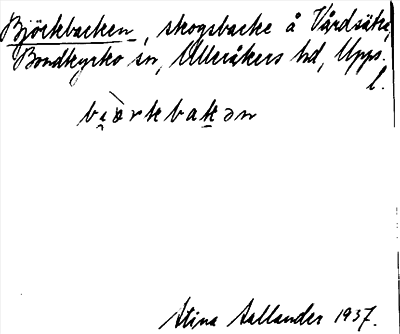 Björkbacken, skogsbacke å Vårdsätra,
Bondkyrko sn, Ulleråkers hd, Upps.
l.
bi̯ö̀rkbakən
Stina Sallander 1937.